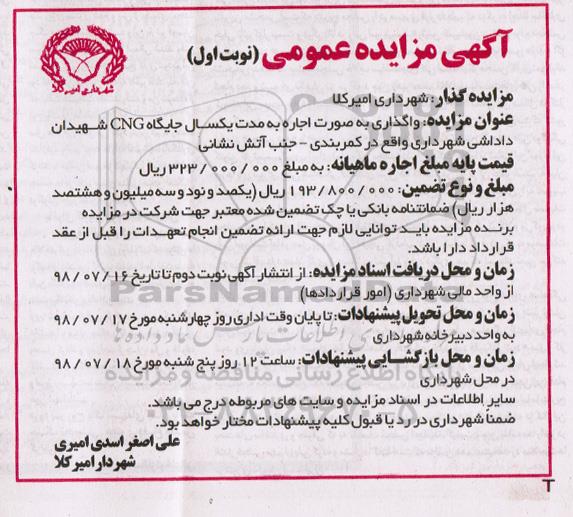 آگهی مزایده عمومی (نوبت اول)
شهرداری امیرکلا
مزایده گذار: شهرداری امیرکلا
عنوان مزایده: واگذاری به صورت اجاره به مدت یکسال جایگاه CNG شهیدان
داداشی شهرداری واقع در کمربندی - جنب آتش نشانی
قیمت پایه مبلغ اجاره ماهیانه: به مبلغ ۳۲۳/۰۰۰/۰۰۰ ریال
مبلغ و نوع تضمین: ۱۹۳/۸۰۰/۰۰۰ ریال (یکصد و نود و سه میلیون و هشتصد
هزار ریال) ضمانتنامه بانکی یا چک تضمین شده معتبر جهت شرکت در مزایده
برنده مزایده باید توانایی لازم جهت ارائه تضمین انجام تعهدات را قبل از عقد
قرارداد دارا باشد.
زمان و محل دریافت اسناد مزایده: از انتشار آگهی نوبت دوم تا تاریخ ۹۸/۰۷/۱۶
از واحد مالی شهرداری (امور قراردادها)
زمان و محل تحویل پیشنهادات: تا پایان وقت اداری روز چهارشنبه مورخ ۹۸/۰۷/۱۷
به واحد دبیرخانه شهرداری
زمان و محل بازگشایی پیشنهادات: ساعت ۱۲ روز پنج شنبه مورخ ۹۸/۰۷/۱۸
در محل شهرداری
سایر اطلاعات در اسناد مزایده و سایت های مربوطه درج می باشد.
ضمناً شهرداری در رد یا قبول کلیه پیشنهادات مختار خواهد بود.
علی اصغر اسدی امیری
شهردار امیرکلا
ParsNamadData
پایگاه اطلاع رسانی مناقصه و مزایده
T